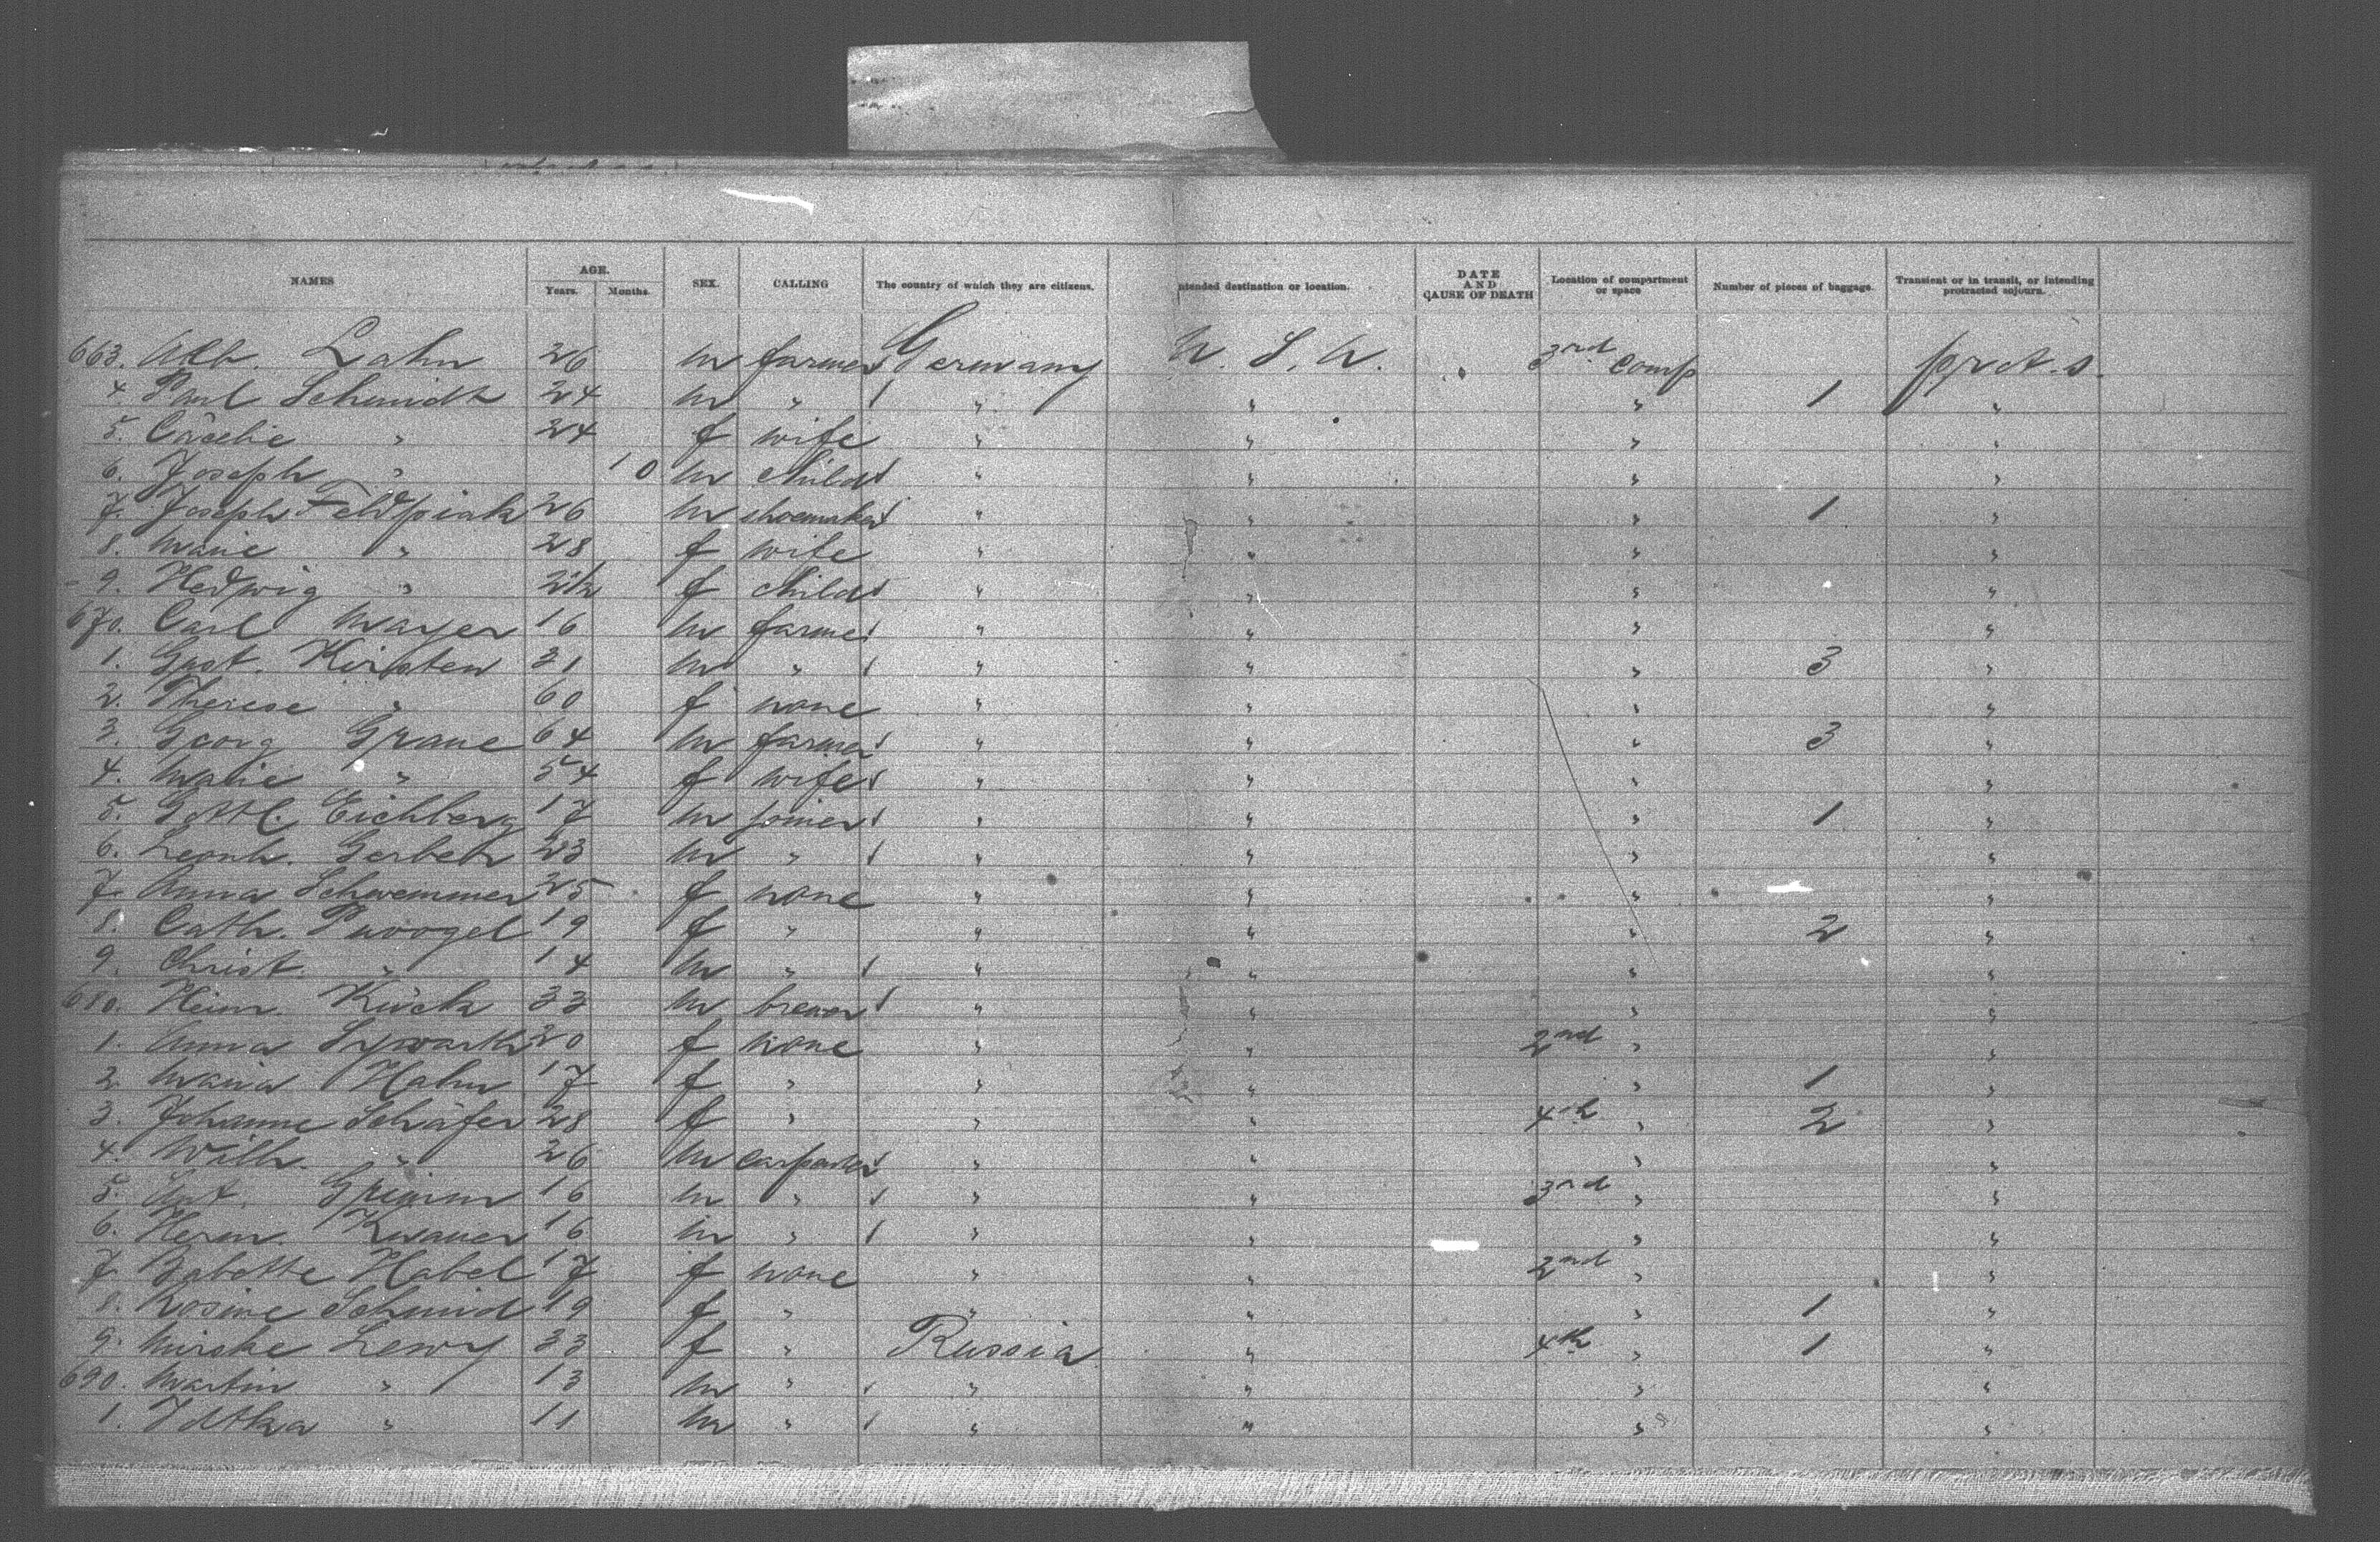 NAMES AGE. Years. Months. SEX. CALLING The country of which they are citizens. Intended destination or location. DATE AND CAUSE OF DEATH Location of compartment or space Number of pieces of baggage. Transient or in transit, or intending protracted sojourn.
663. Alb. Lahn 26 m farmer Germany U. S. A. 3rd comp prot. s.
4 Paul Schmidt 24 m " " " " 1 "
5. Cäcelie " 24 f wife " " " "
6. Joseph " 10 m child " " " "
7. Joseph Feldpiak 26 m shoemaker " " " 1 "
8. Marie " 28 f wife " " " "
9. Hedwig " 2 1/2 f child " " " "
670. Carl Mayer 16 m farmer " " " "
1. Gust. Kirsten 31 m " " " " 3 "
2. Therese " 60 f none " " " "
3. Georg Graue 64 m farmer " " " 3 "
4. Marie " 54 f wife " " " "
5. Gottl. Eichberg 17 m joiner " " " 1 "
6. Leonh. Gerbeth 23 m " " " " "
7. Anna Schwemmer 25 f none " " " "
8. Cath. Puvogel 19 f " " " " 2 "
9. Christ. " 14 m " " " " "
680. Heinr. Kück 33 m brewer " " " "
1. Anna 20 f none " " 2nd " "
2. Maria Hahn 17 f " " " " 1 "
3. Johanne Schäfer 28 f " " " 4th " 2 "
4. Wilh. " 26 m carpenter " " " "
5. Ant. Grimm 16 m " " " 3rd " "
6. Herm. Knauer 16 m " " " " "
7. Babette Habel 17 f none " " 2nd " "
8. Rosine Schmid 19 f " " " " 1 "
9. Mirske Lewy 33 f " Russia " 4th " 1 "
690. Martin " 13 m " " " " "
1. " 11 m " " " " "